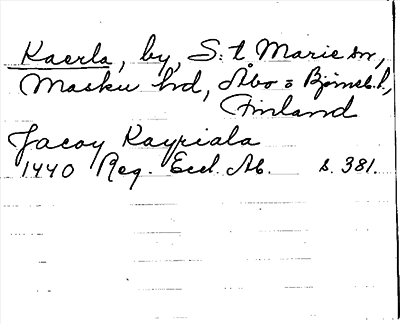 Kaerla, by, S:t Marie sn,
Masku hd, Åbo o Björneb. l.,
Finland
Jacoy Kayriala
1440 Reg. Eccl. Ab. s. 381.